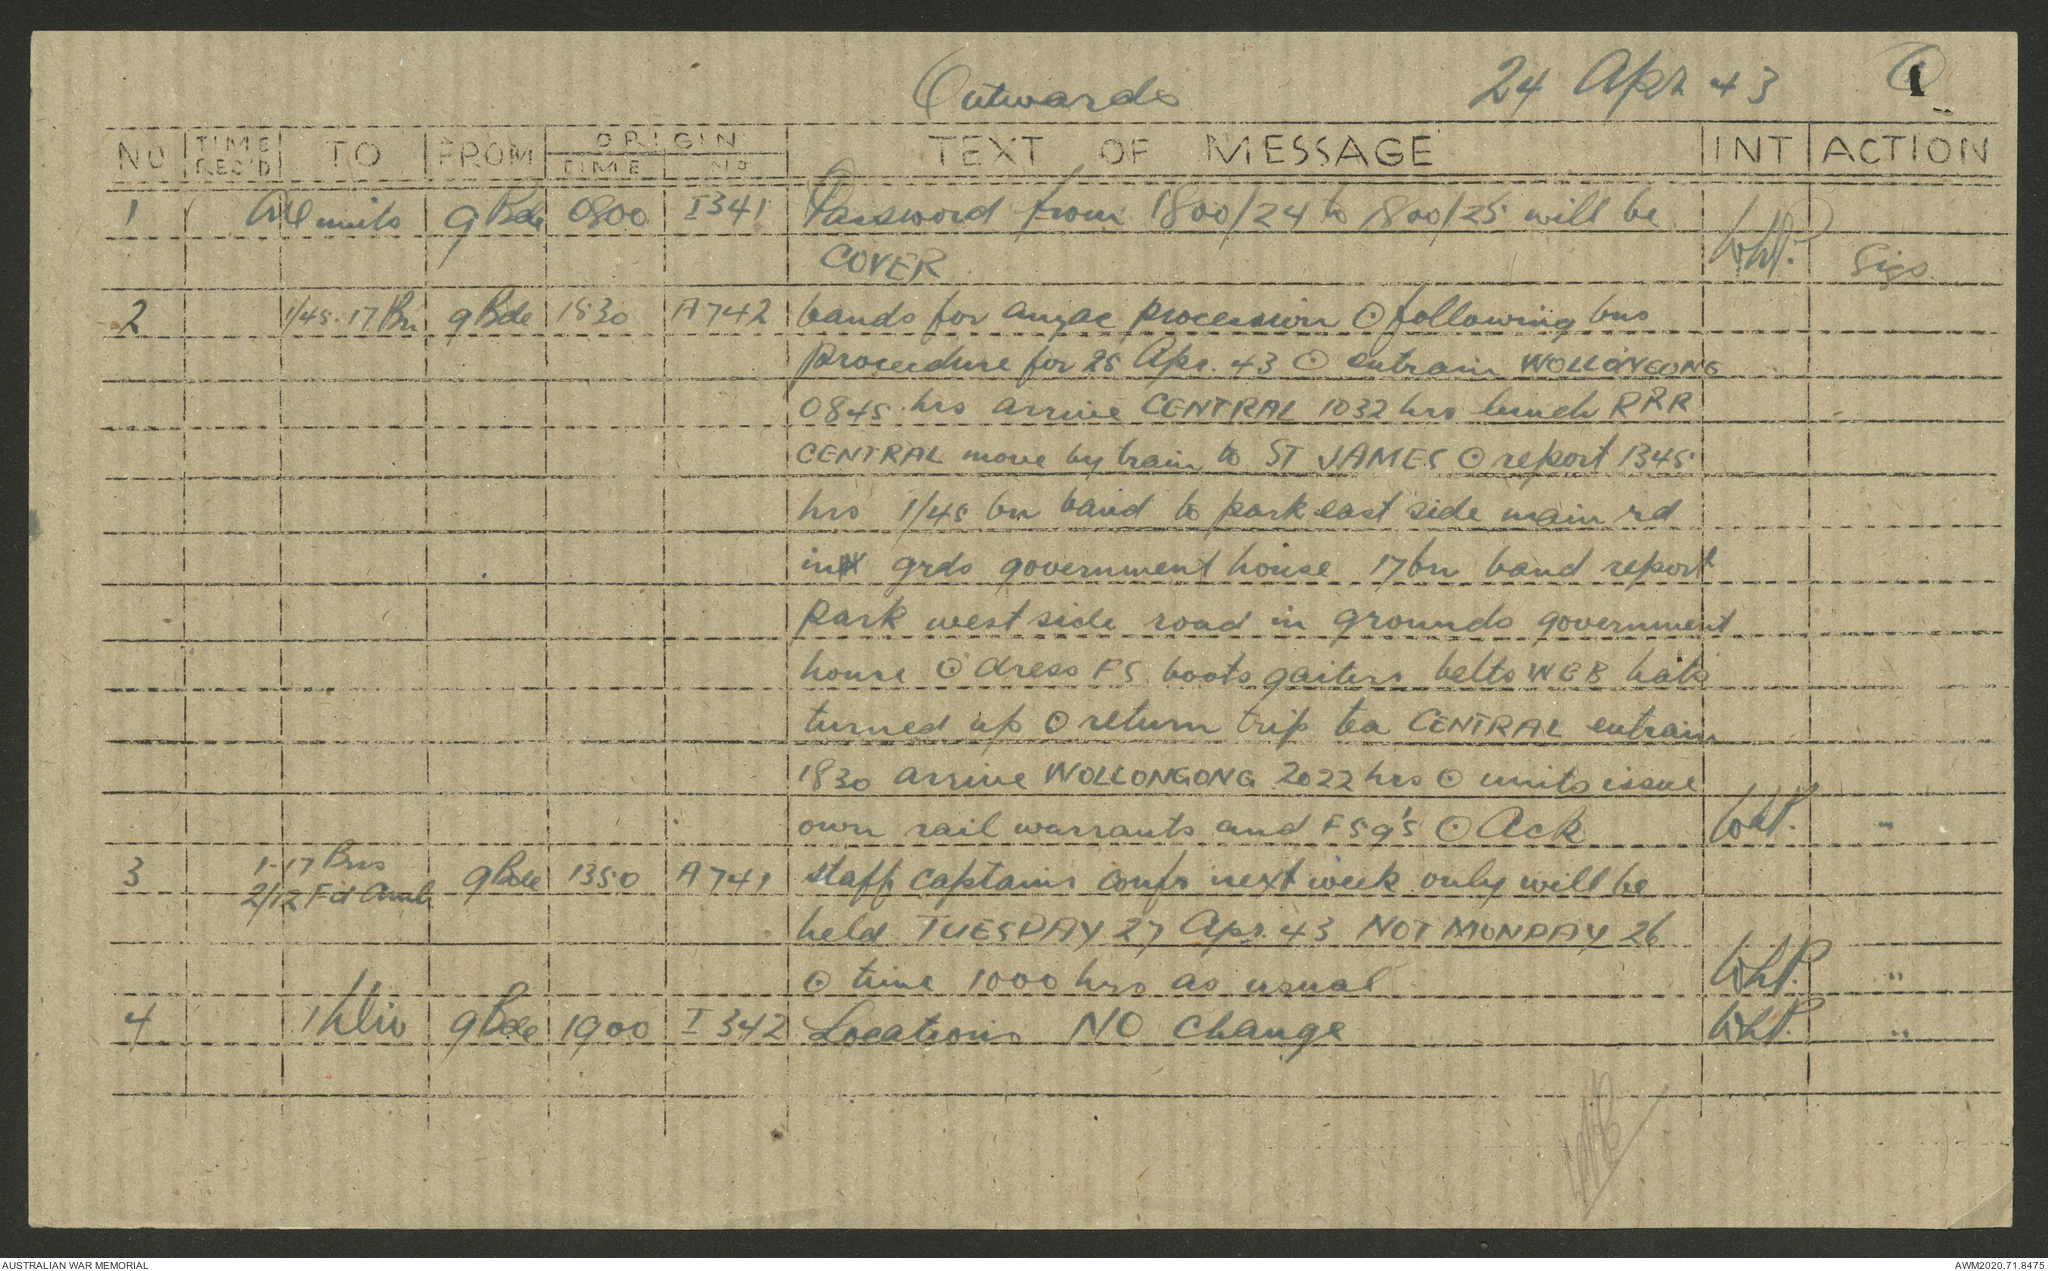 Outwards 24 Apr 43
NO TIME REC'D TO FROM ORIGIN TIME NO TEXT OF MESSAGE INT ACTION
1 All units 9 Bde 0800 I341 Password from 1800/24 to 1800/25 will be
COVER WhP. Sigs.
2 1/45. 17 Bn 9 Bde 1530 A742 bands for anzac procession ⊙ following bns
procedure for 25 Apr. 43 ⊙ entrain WOLLONGONG
0845 hrs arrive CENTRAL 1032 hrs lunch RRR
CENTRAL move by train to ST JAMES ⊙ report 1345
hrs 1/45 bn band to park east side main rd
in grds government house 17 bn band report
park west side road in grounds government
house ⊙ dress FS boots gaiters belts WEB hats
turned up ⊙ return trip tea CENTRAL entrain
1830 arrive WOLLONGONG 2022 hrs ⊙ units issue
own rail warrants and FSg's ⊙ Ack WhP. "
3 1-17 Bns
2/12 Fd Amb 9 Bde 1350 A741 staff captains confr next week only will be
held TUESDAY 27 Apr. 43 NOT MONDAY 26
⊙ time 1000 hrs as usual WhP. "
4 1 Div 9 Bde 1900 I342 Locations NO Change WhP. "
AUSTRALIAN WAR MEMORIAL AWM2020.71.8475